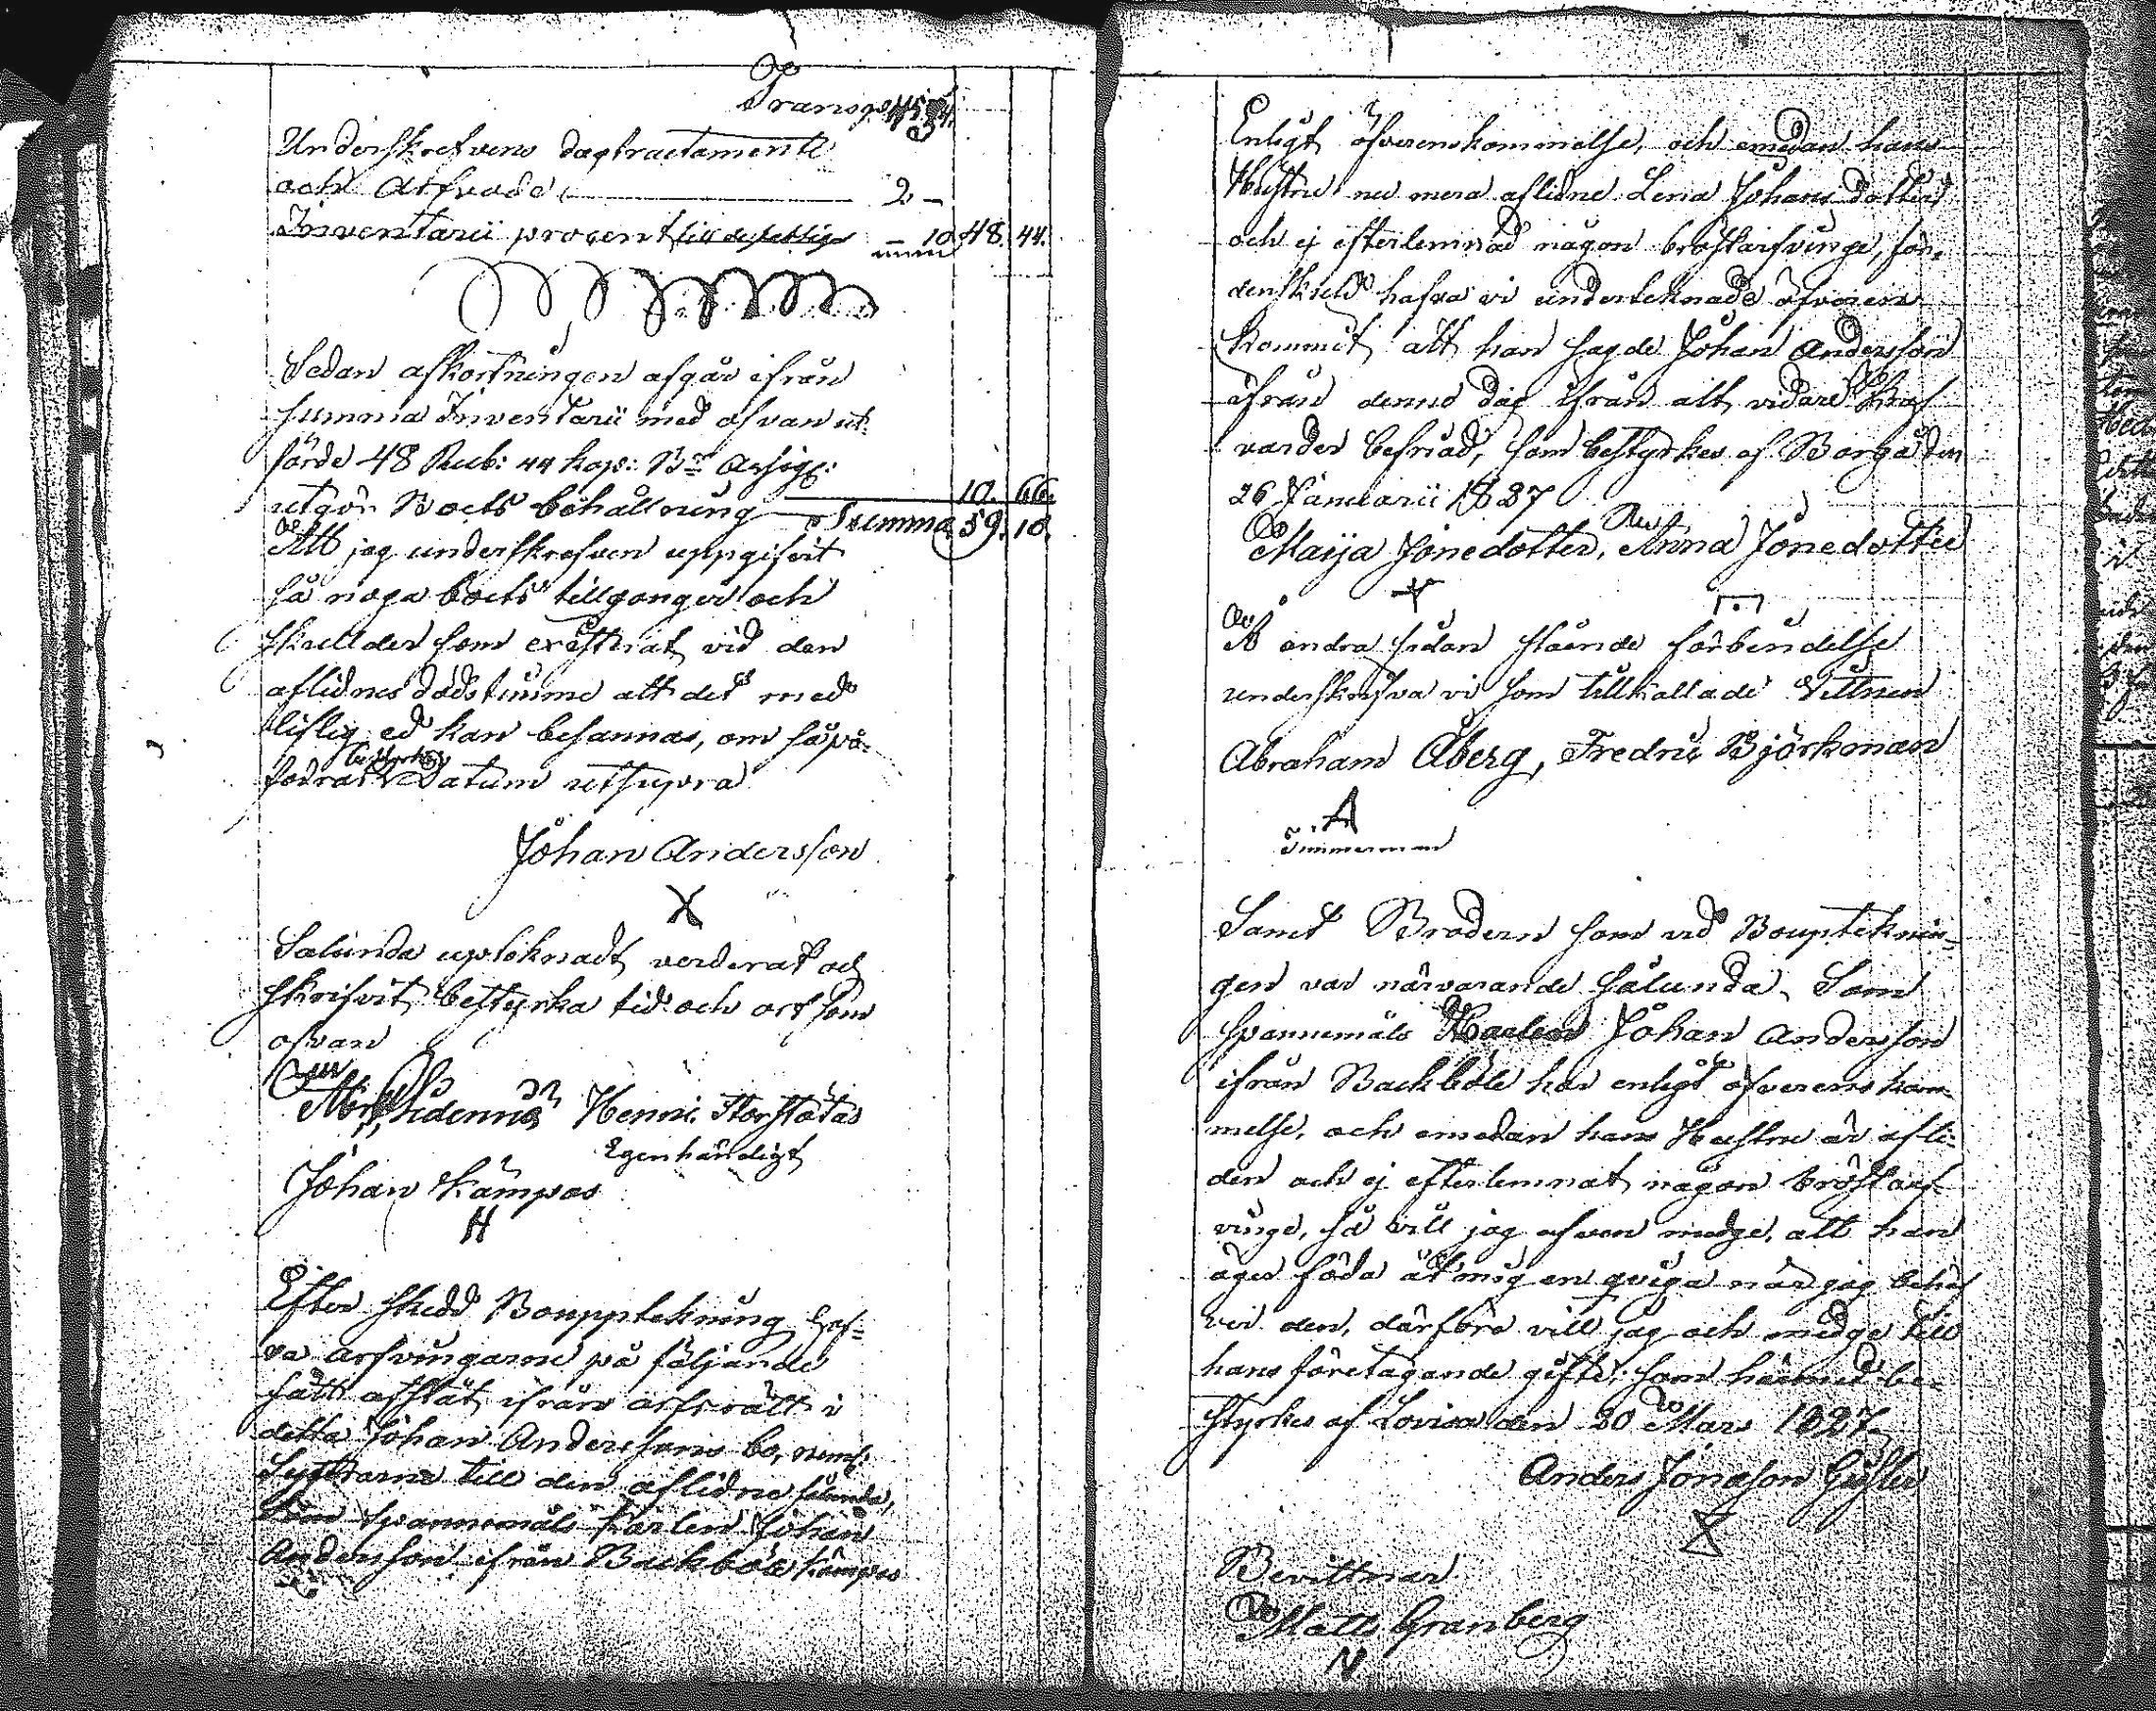 Transp.
Underskrefvens dagtractamente
och Arfvode 2 —
Inventarii procent till de fattiga — 10 48. 44.
Sedan afkortningen afgår ifrån
summa Inventarii med ofvan ut-
förde 48 Rub: 44 kop: Bco Assig:
utgör Boets behållning 10. 66.
Summa 59. 10.
Att jag underskrefven uppgifvit
så noga boets tillgonger och
skullder som existerat vid den
aflidnes dödstimme att det med
liflig ed kan besannas, om så på-
fodras bestyrkes Datum utsupra
Johan Andersson
X
Sålunda upteknadt, verderat och
skrifvit, bestyrka tid och ort som
ofvan
Henric Storståtas
Egenhändigt
Johan Kämpas
H
Efter skedd Bouppteknung haf-
va arfvingarne på följande
sätt afståt ifrån arfsrätt i
detta Johan Anderssons bo, neml:
Systrarne till den aflidne sålunda,
Som Spannemåls Karlen Johan
Andersson ifrån Backböle Kämpas
Enligt öfverenskommelse, och emedan hans
Hustru nu mera aflidne Lena Johans dotter
och ej efterlemnad någon bröstarfvinge, för-
denskuld hafva vi undertecknade öfverens
kommit att han sagde Johan Andersson
ifrån denne dag ifrån alt vidare kraf
varder befriad, som bestyrkes af Borgå den
26 Januarii 1827
Maija Jönedotter, Anna Jönedotter
Å andra sidan stående förbindelse
underskrifva vi som tillkallade Vittnen
Abraham Åberg, Fredric Björkman
A
Timmerman
Samt Brodern som vid Boupteknin-
gen var närvarande sålunda, Som
Spannemåls Karlen Johan Andersson
ifrån Backböle har enligt öfverenskom-
melse, och emedan hans Hustru är afli-
den och ej efterlemnat någon bröstarf-
vinge, så vill jag afven medge, att han
äger föda åt mig en qviga när jag behöf
ver den, därföre vill jag och medge till
hans företagande gifte, som härmed be-
styrkes af Lovisa den 20 Mars 1827
Anders Jönasson
X
Bevittnar
Matts Granberg